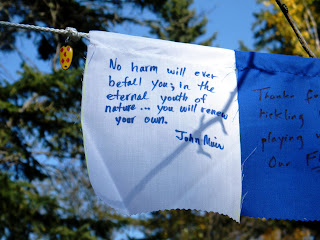 No harm will ever
befall you; in the
eternal youth of
nature... you will renew
your own.
John Muir
Thanks fo
tickling
playing w
Our F